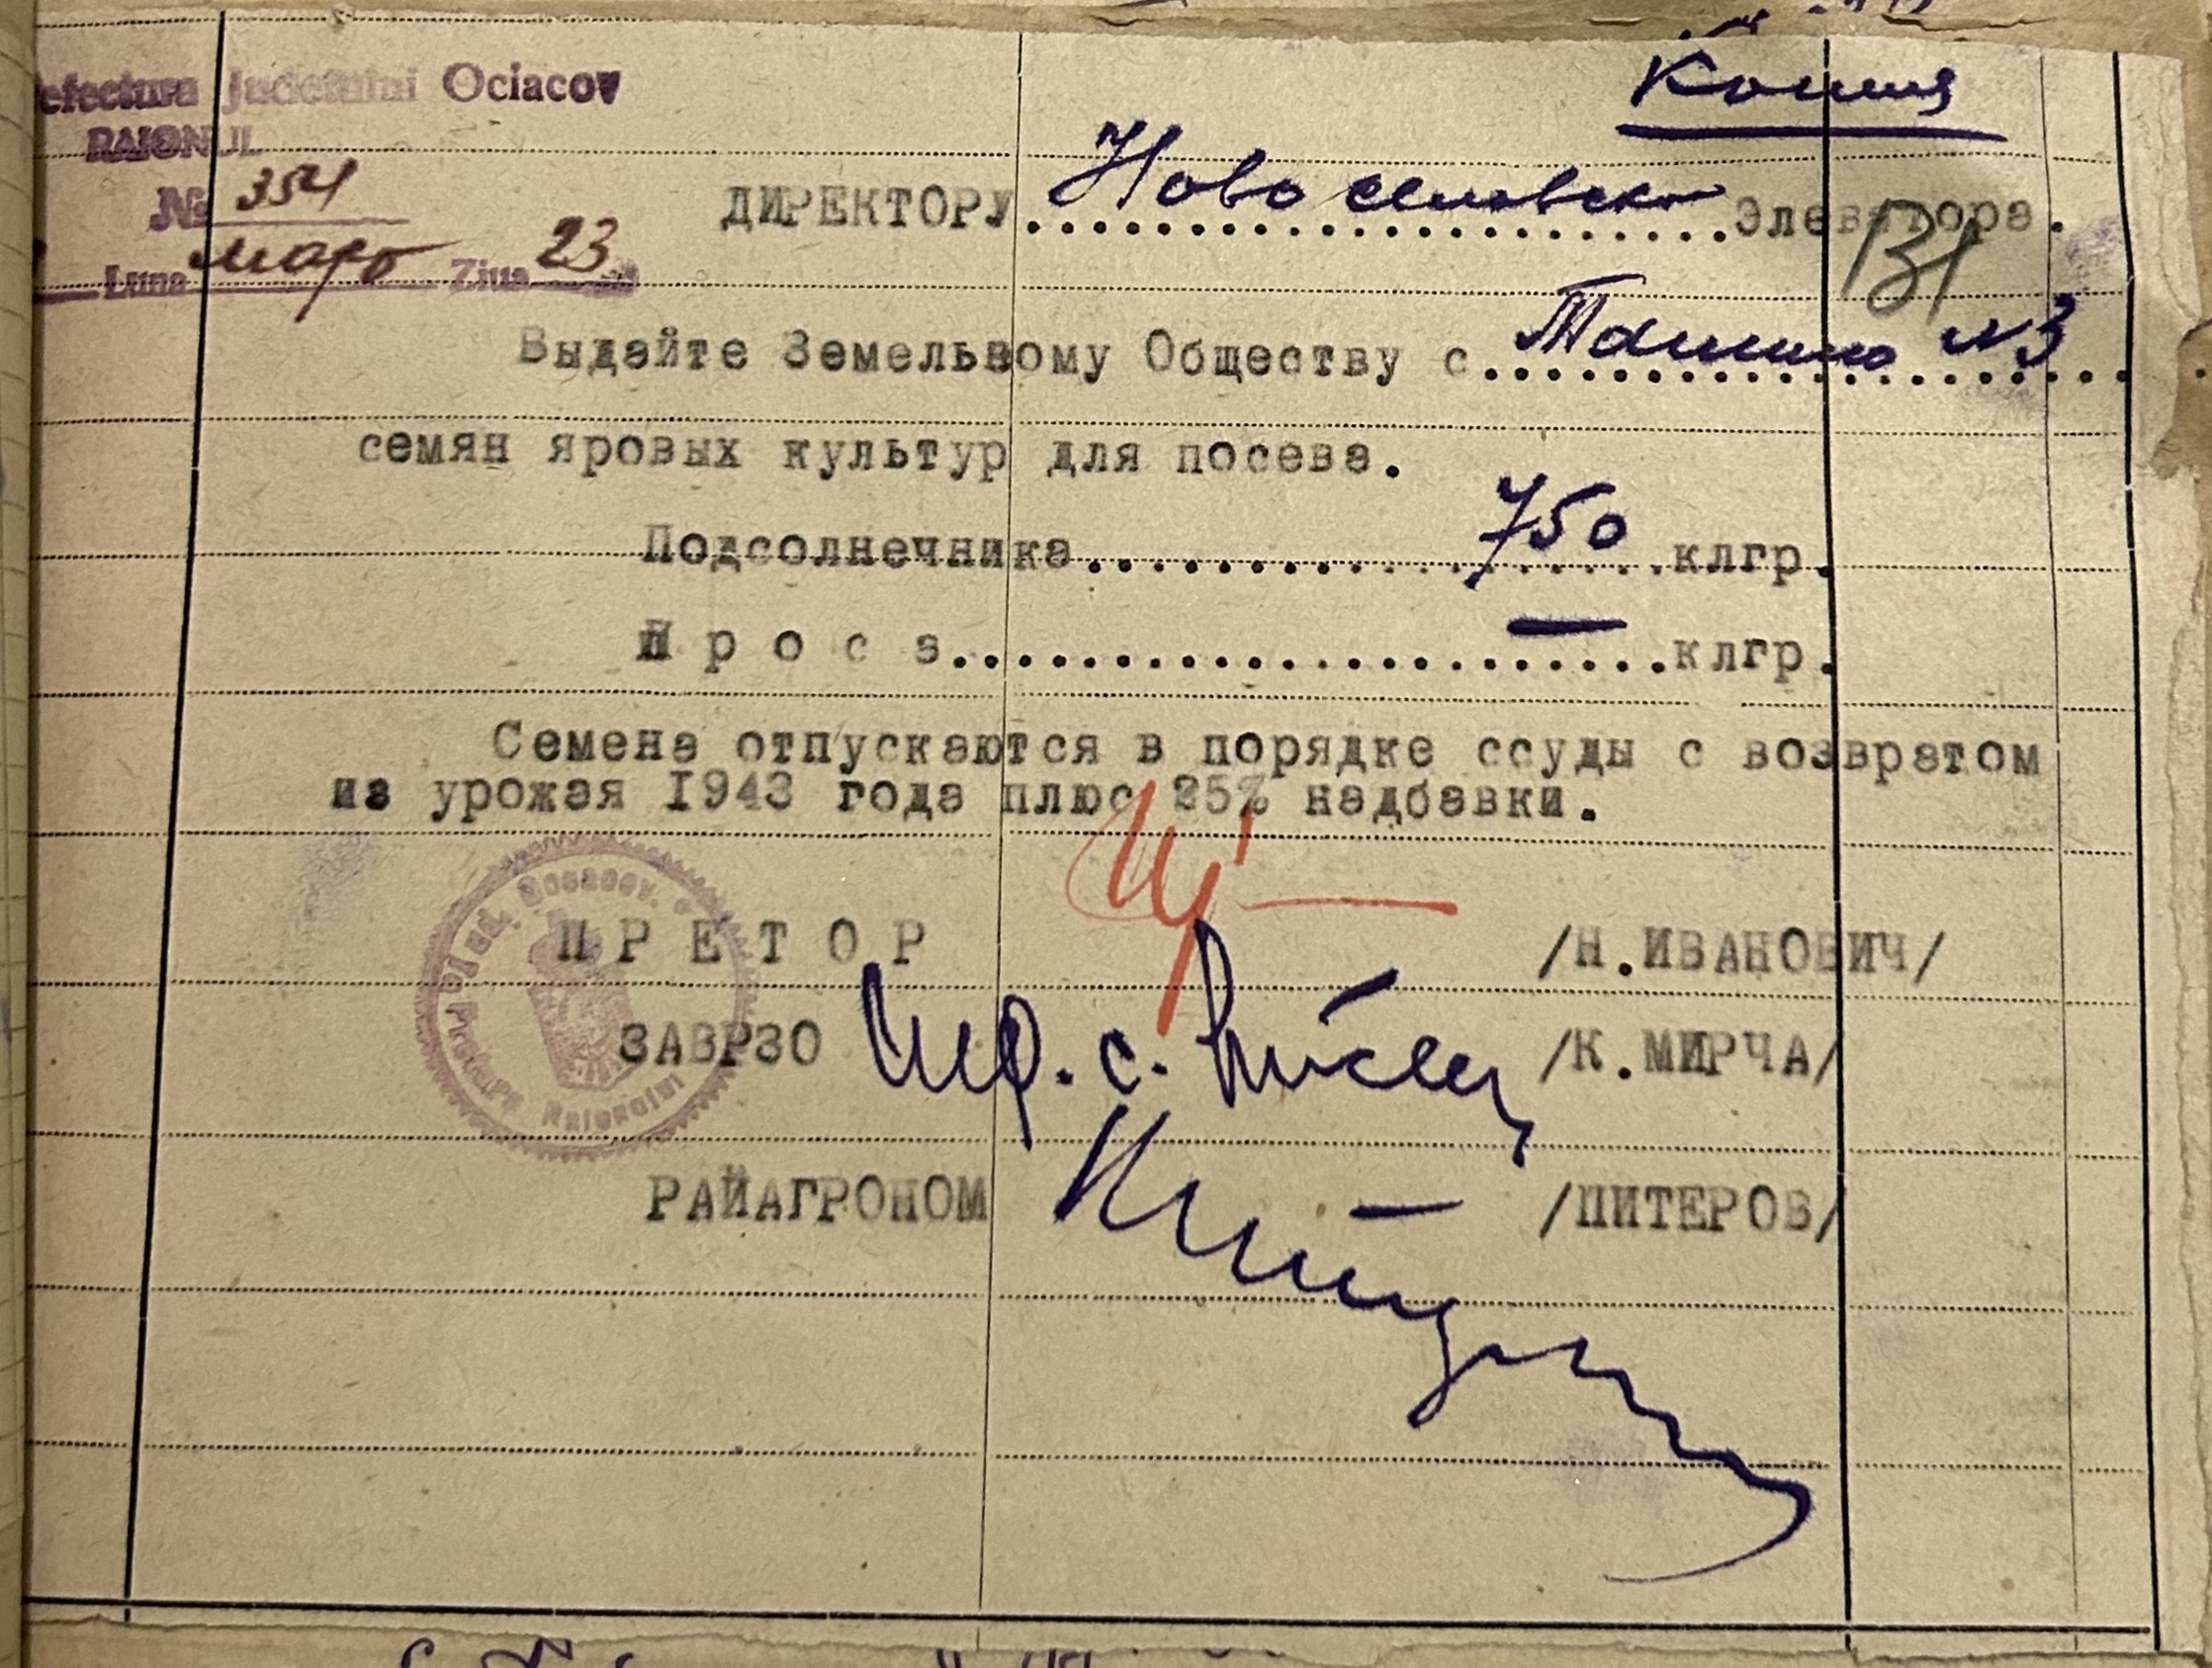 Копия
efectura Judetului Ociacov
RAIONUL
№ 354
Luna март Ziua 23
ДИРЕКТОРУ Новоселовск Элеватора.
131
Выдайте Земельному Обществу с. Ташино №3
семян яровых культур для посева.
Подсолнечника 750 клгр.
П р о с а — клгр.
Семена отпускаются в порядке ссуды с возвратом
из урожая 1943 года плюс 25% надбавки.
П Р Е Т О Р /Н.ИВАНОВИЧ/
ЗАВРЗО /К.МИРЧА/
РАЙАГРОНОМ /ПИТЕРОВ/
Jud. Oceacov.
Pretura Raionului